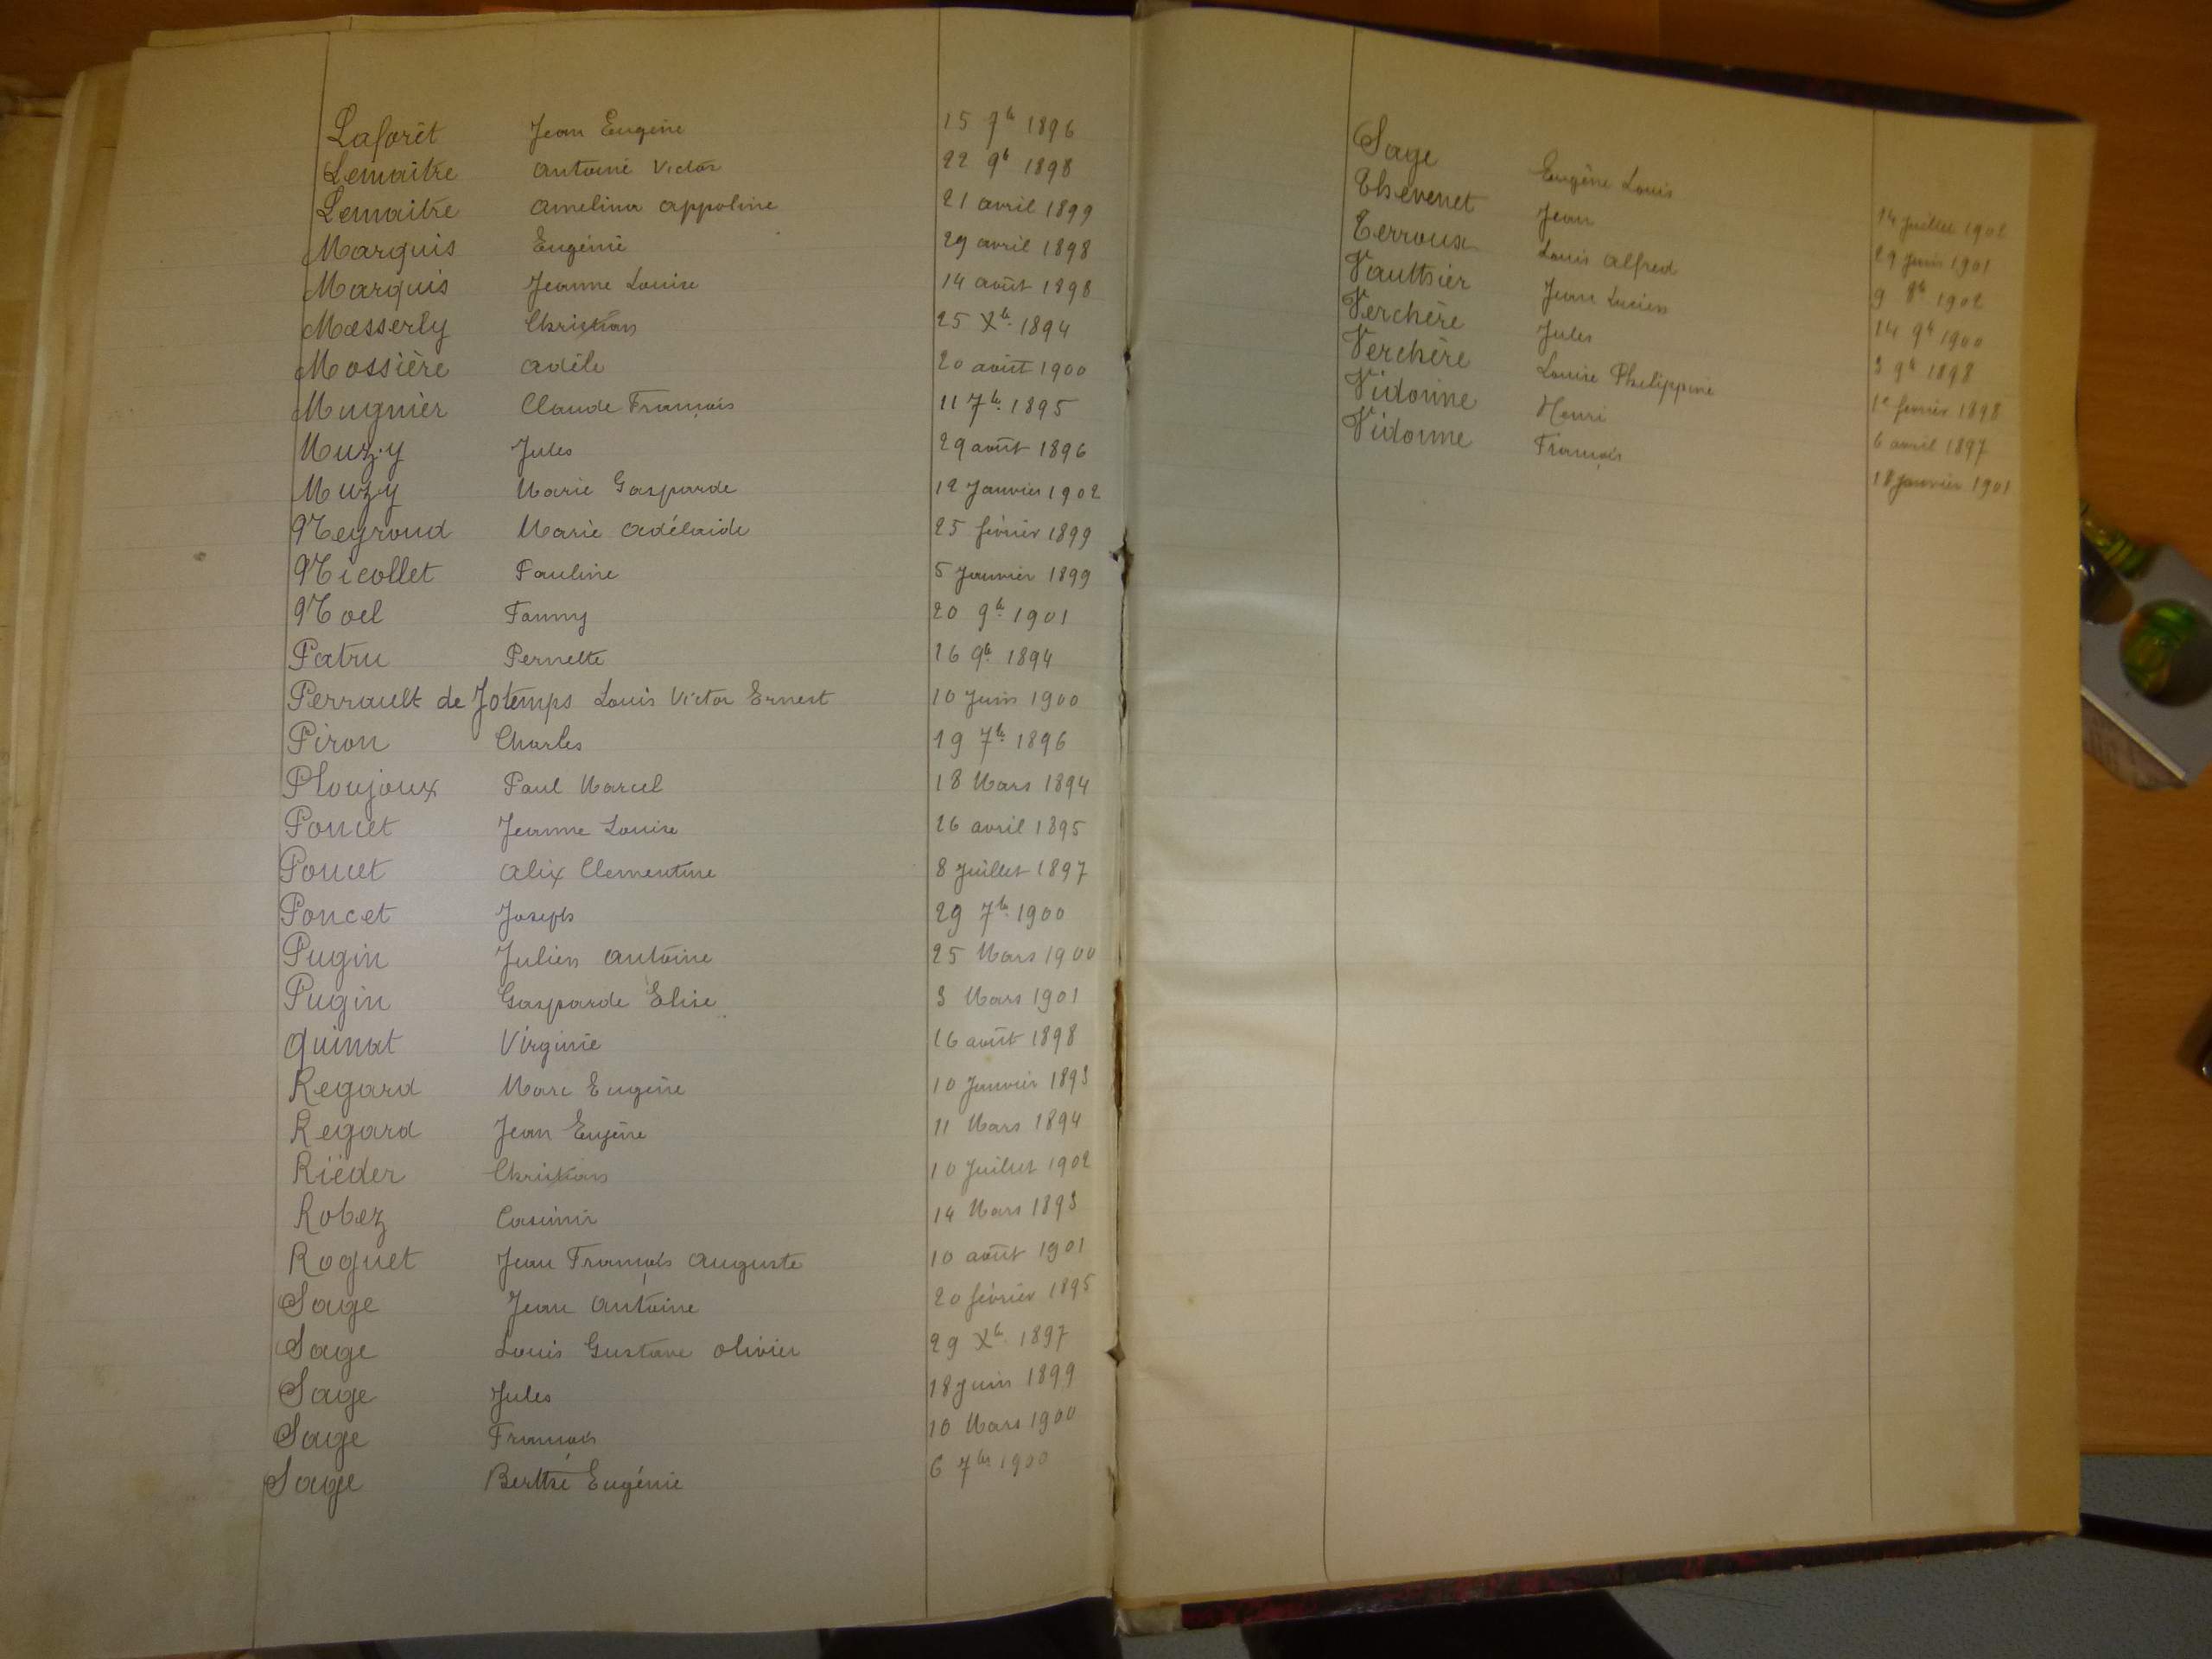 Laforêt Jean Eugène 15 7b 1896
Lemaitre Antoine Victor 22 9b 1898
Lemaitre Amelina Appoline 21 avril 1899
Marquis Eugénie 29 avril 1898
Marquis Jeanne Louise 14 août 1898
Mæsserly Christian 25 Xb. 1894
Mossière Adèle 20 août 1900
Mugnier Claude François 11 7b. 1895
Muzy Jules 29 août 1896
Muzy Marie Gasparde 12 Janvier 1902
Neyroud Marie Adélaide 25 février 1899
Nicollet Pauline 5 Janvier 1899
Noel Fanny 20 9b. 1901
Patru Pernette 16 9b. 1894
Perrault de Jotemps Louis Victor Ernest 10 Juin 1900
Piron Charles 19 7b. 1896
Ploujoux Paul Marcel 18 Mars 1894
Poncet Jeanne Louise 26 avril 1895
Poncet Alix Clementine 8 Juillet 1897
Poncet Joseph 29 7b. 1900
Pugin Julien Antoine 25 Mars 1900
Pugin Gasparde Elise 3 Mars 1901
Quinat Virginie 16 août 1898
Regard Marc Eugène 10 Janvier 1893
Regard Jean Eugène 11 Mars 1894
Rieder Christian 10 Juillet 1902
Robez Casimir 14 Mars 1893
Roquet Jean François Auguste 10 août 1901
Sage Jean Antoine 20 février 1895
Sage Louis Gustave Olivier 29 Xb. 1897
Sage Jules 18 Juin 1899
Sage François 10 Mars 1900
Sage Berthe Eugénie 6 7b. 1900
Sage Eugène Louis 14 Juillet 1902
Thevenet Jean 29 Juin 1901
Terroux Louis Alfred 9 8b. 1902
Vauthier Jean Lucien 14 9b 1900
Verchère Jules 3 9b 1898
Verchère Louise Philippine 1e février 1898
Vidonne Henri 6 avril 1897
Vidonne François 18 Janvier 1901